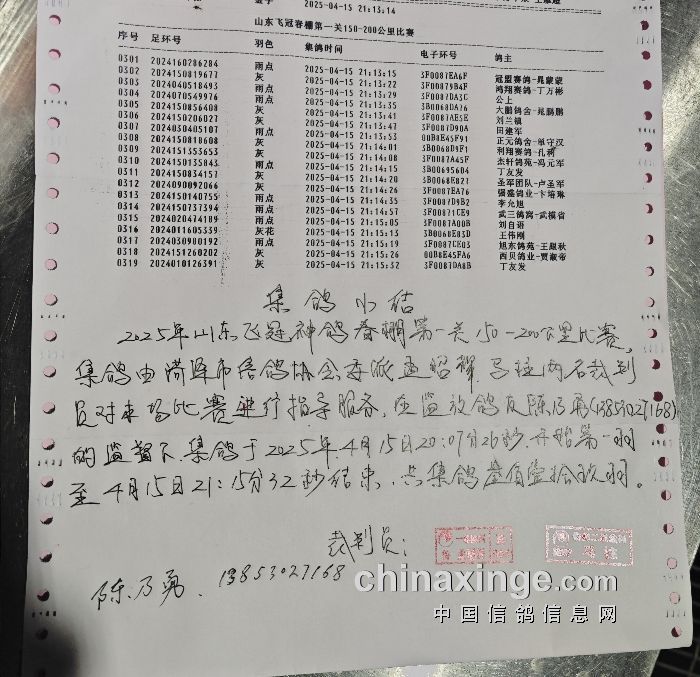 签字 2025-04-15 21:13:14
山东飞冠春棚第一关150-200公里比赛
序号 足环号 羽色 集鸽时间 电子环号 鸽主
0301 2024160286284 雨点 2025-04-15 21:13:15 3F0087EA6F 冠盟赛鸽-晁蒙蒙
0302 2024150819677 灰 2025-04-15 21:13:22 3F0087B94F 鸿翔赛鸽-丁万彬
0303 2024040518493 雨点 2025-04-15 21:13:29 3F0087DA3C 公上
0304 2024070549976 雨点 2025-04-15 21:13:35 3B0068DA26 大鹏鸽舍-晁鹏鹏
0305 2024150856408 灰 2025-04-15 21:13:41 3F0087AE5E 刘兰镇
0306 2024150206027 灰 2025-04-15 21:13:47 3F0087D90A 田建军
0307 2024030405107 雨点 2025-04-15 21:13:53 00B8E45F91 正元鸽舍-单守汉
0308 2024150818608 灰 2025-04-15 21:14:01 3B0068D4F1 利翔赛鸽-孔利
0309 2024151353653 灰 2025-04-15 21:14:08 3F0087A45F 杰轩鸽苑-冯元军
0310 2024150135843 雨点 2025-04-15 21:14:15 3B00695604 丁友发
0311 2024150834157 灰 2025-04-15 21:14:20 3B0068E827 圣军团队-卢圣军
0312 2024090092066 灰 2025-04-15 21:14:26 3F0087EA76 强盛鸽业-卞培琳
0313 2024150140755 雨点 2025-04-15 21:14:35 3F0087D9B2 李允旭
0314 2024150737394 雨点 2025-04-15 21:14:57 3F00871CE9 武三鸽窝-武模省
0315 2024020474189 雨点 2025-04-15 21:15:05 3F0087A00B 刘自语
0316 2024011605339 灰花 2025-04-15 21:15:13 3B0068E83D 王伟刚
0317 2024030900192 雨点 2025-04-15 21:15:19 3F0087CE03 旭东鸽苑-王殿秋
0318 2024151260202 灰 2025-04-15 21:15:26 00B8E45FA6 西贝鸽业-贾淑帝
0319 2024010126391 灰 2025-04-15 21:15:32 3F0087DA8B 丁友发
集鸽小结
2025年山东飞冠神鸽春棚第一关150-200公里比赛,
集鸽由菏泽市信鸽协会委派 马柱两名裁判
员对本场比赛进行指导服务,在监放鸽友陈乃勇(13853027168)
的监督下,集鸽于2025年4月15日20:07分26秒开始第一羽
至4月15日21:15分32秒结束,共集鸽叁佰壹拾玖羽。
裁判员:
陈乃勇、13853027168
chinaxinge.com
中国信鸽信息网